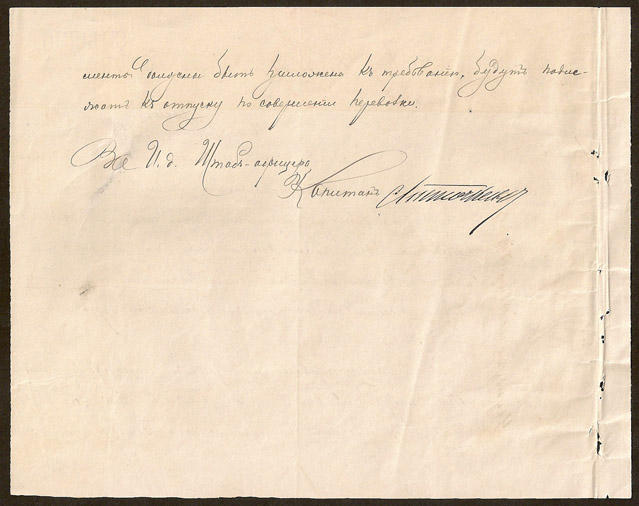 менты должны быть приложены къ требованію, будутъ подле-
жать къ отпуску по совершеніи перевозки.
И. д. Штабъ-офицера
Капитанъ